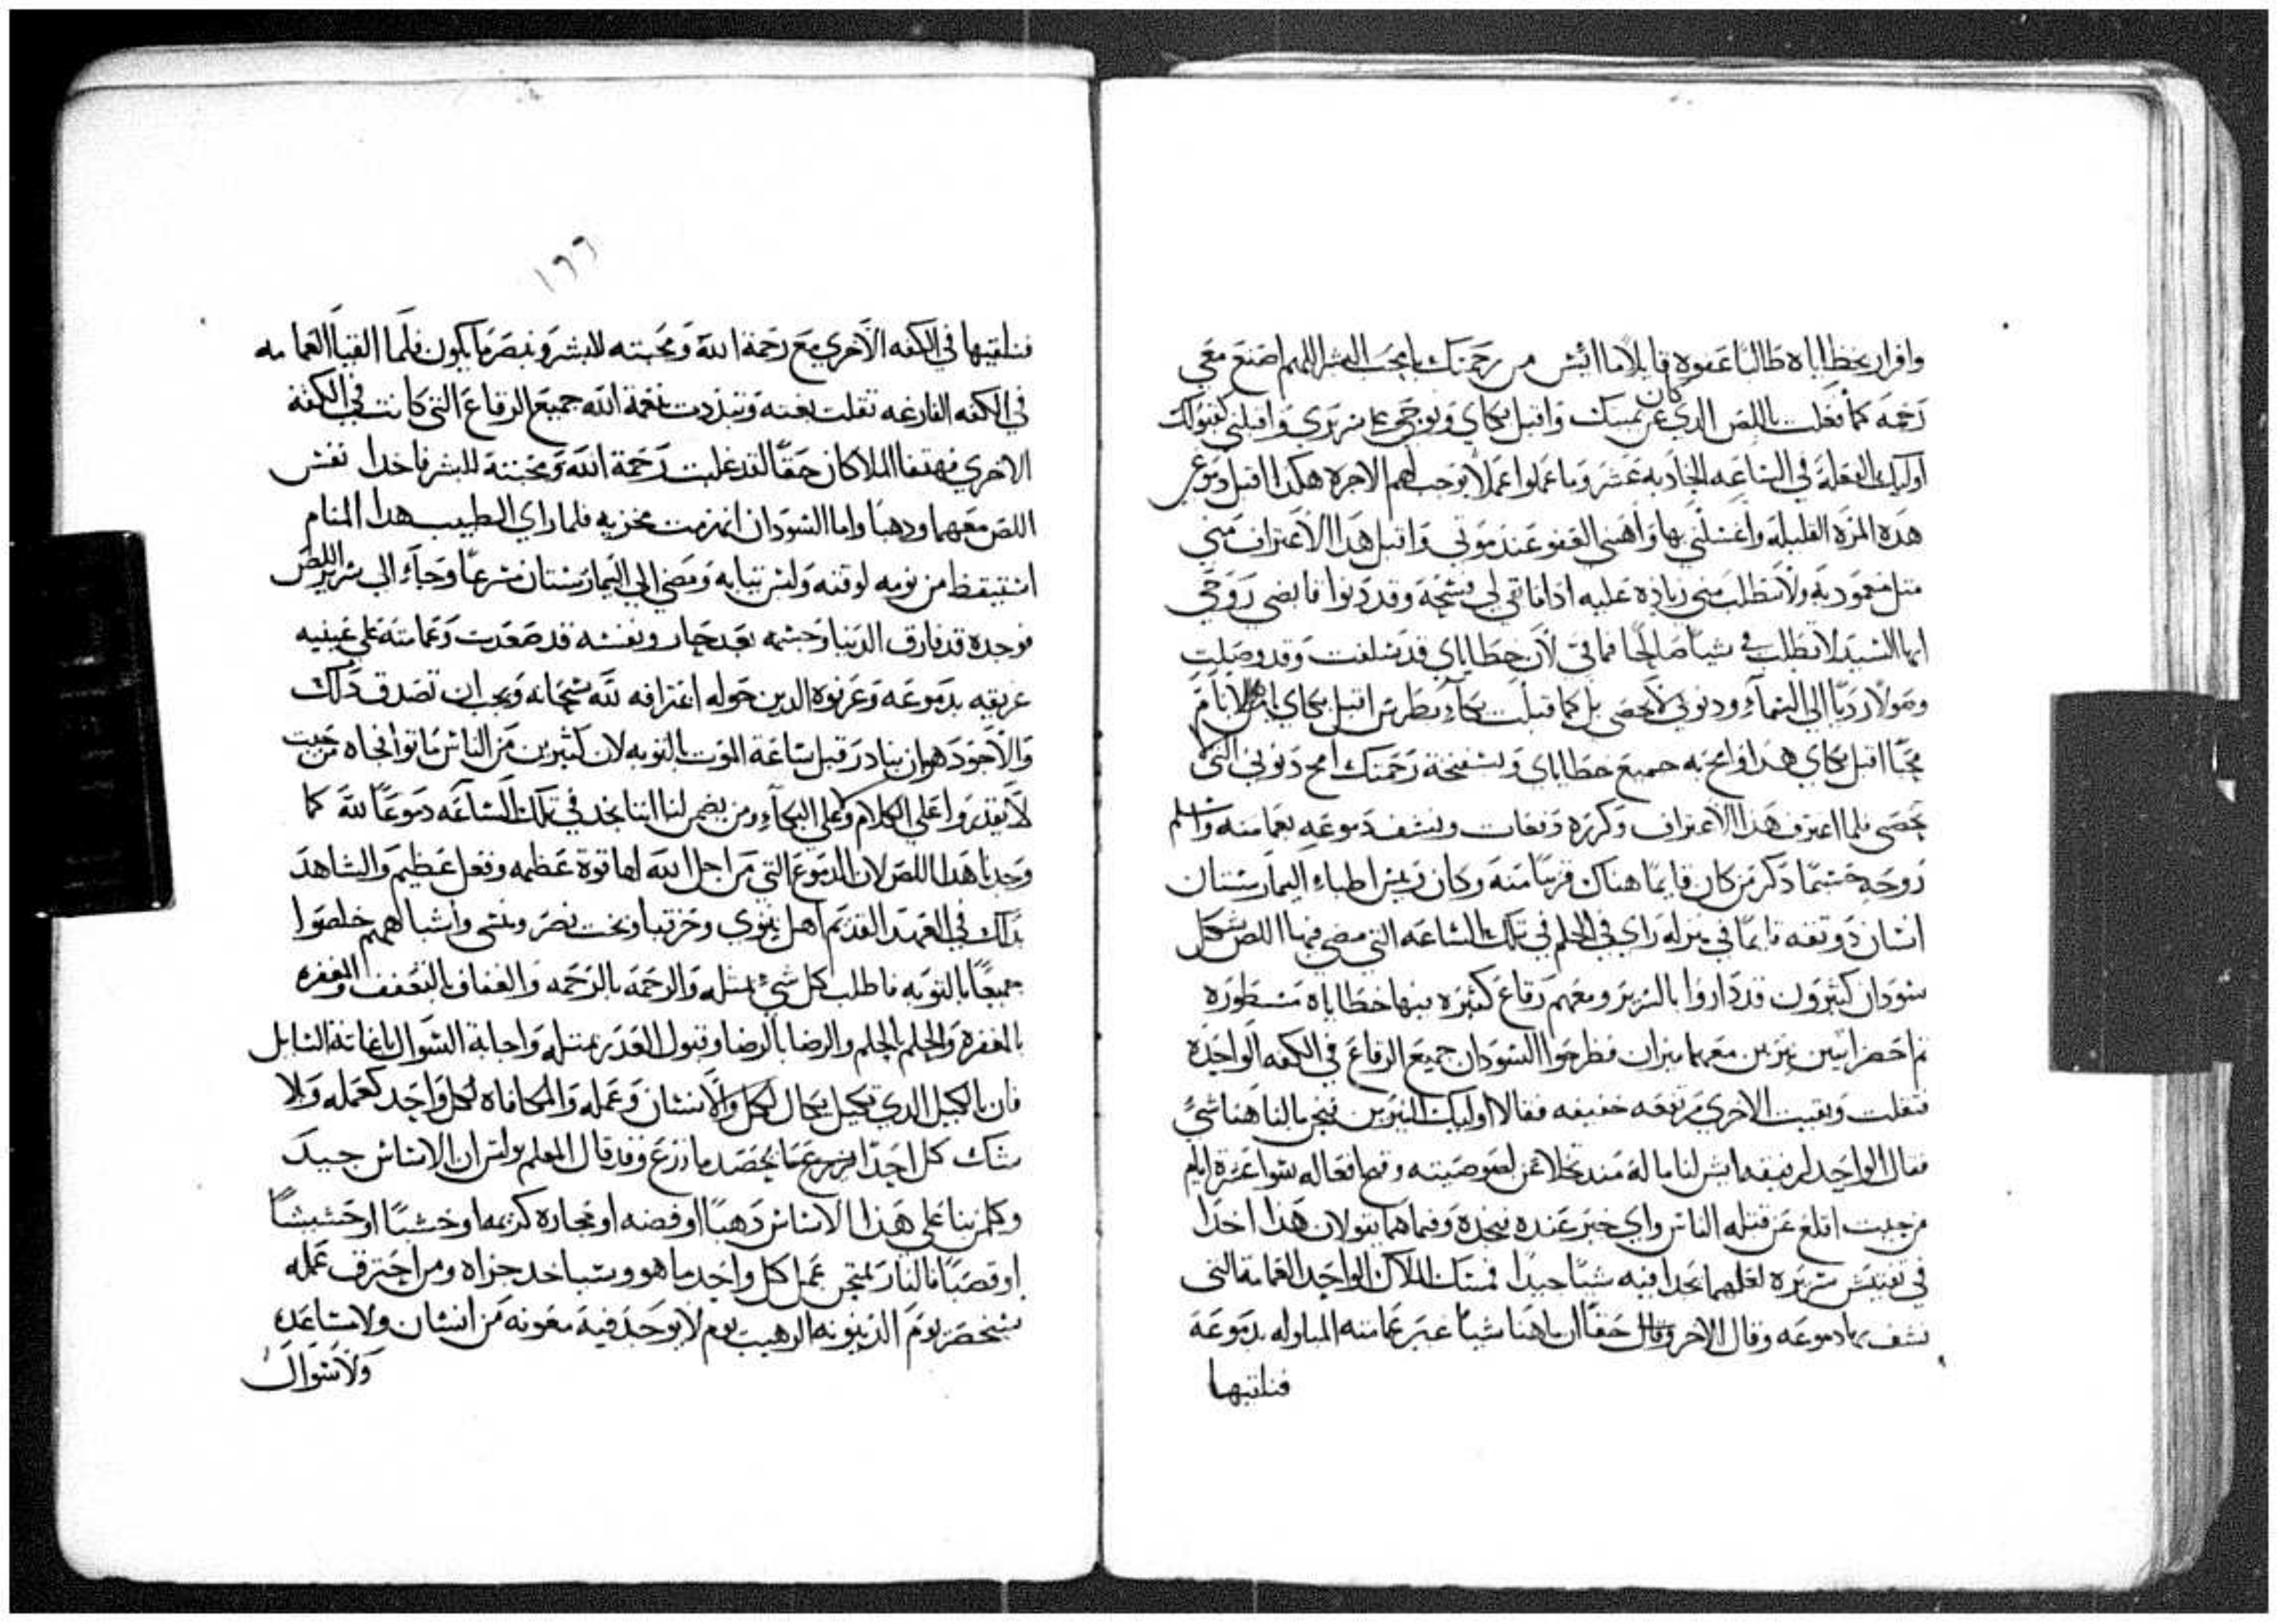 واقرار بخطاياه طالبًا عفوه قايلًا ما ايئس من رحمتك يا محب البشر اللهم اصنع معي
رحمه كما فعلت باللص الدي كان عن يمينك واقبل بكاي ونوحي على سريري واقبلني كقبولك
اوليك الفعلة في الساعه الحاديه عشر وما عملوا عملًا يوجب لهم الاجره هكدا اقبل دموعي
هده المره القليله واغسلني بها واهبني العفو عند موتي واقبل هدا الاعتراف مني
متل معموديه ولا تطلب مني زياده عليه ادا ما بقي لي فسحة وقد دنوا قابضي روحي
ايها السيد لا تطلب في شيا صالحًا فما في لان خطاياي قد سلفت وقد وصلت
ودنوبي لا تحصى بل كما قبلت بكاء بطرس اقبل بكاي
اقبل بكاي هدا وامح به جميع خطاياي وبسفنجة رحمتك امح دنوبي التي
تحصى فلما اعترف هدا الاعتراف وكرره دفعات ونشف دموعه بعمامته واسلم
روحه حسبما دكر من كان قايمًا هناك قريبًا منه وكان رييس اطباء البيمارستان
انسان دو تقه نايمًا في منزله راى في الحلم في تلك الساعه التي مضى فيها اللص شكل
سودان كثيرون قد داروا بالسرير ومعهم رقاع كثيره فيها خطاياه مسطوره
تم احضر اتنين نيرين معهما ميزان فطرحوا السودان جميع الرقاع في الكفه الواحده
فتقلت وبقيت الاخرى مرتفعه خفيفه فقالا اوليك النيرين نحن ما لنا هنا شئ
فقال الواحد لرفيقه ايش لنا ما له مند تخلا عن لصوصيته وقبح افعاله سوا عشرة ايام
من حيت اقلع عن قتله الناس واي خير عنده نجده وفيما هما يقولان هدا اخدا
في تفتيش سريره لعلهما يجدا فيه شيًا جيدًا فمسك الملاك الواحد العمامة التي
نشف بها دموعه وقال للاخر وقال حقًا ان ما هنا شيا غير عمامته المبلوله بدموعه
فنلقيها
١٦٦
فنلقيها في الكفه الاخرى مع رحمة الله ومحبته للبشر ونبصر ما يكون فلما القيا العمامه
في الكفه الفارغه تقلت بغته وتبددت بنعمة الله جميع الرقاع التي كانت في الكفه
الاخرى فهتفا الملاكان حقًا لقد غلبت رحمة الله ومحبته للبشر فاخدا نفس
اللص معهما ودهبا واما السودان انهزمت مخزيه فلما راى الطبيب هدا المنام
استيقظ من نومه لوقته ولبس تيابه ومضى الى البيمارستان سرعًا وجاء الى سرير اللص
فوجده قد فارق الدنيا وجسمه بعد حار ونفسه قد صعدت وعمامته على عينيه
غريقه بدموعه وعرفوه الدين حوله اعترافه لله سبحانه ويجب ان نصدق دلك
والاجود هو ان نبادر قبل ساعة الموت بالتوبه لان كثيرين من الناس ماتوا فجاه من حيت
لا يقدروا على الكلام ولا على البكاء ومن يضمن لنا اننا نجد في تلك الساعه دموعًا لله كما
وجدنا هدا اللص لان الدموع التي من اجل الله لها قوة عظيمه وفعل عظيم والشاهد
بداك في العهد القديم اهل نينوى وحزقيا وبخت نصر ومنسى واشباههم خلصوا
جميعًا بالتوبه فاطلب كل شيء بمتله والرحمه بالرحمه والعفاف بالتعفف والمغفره
بالمغفره والحلم بالحلم والرضا بالرضا وقبول العدر بمتله واجابة السوال باغاتة السايل
فان بالكيل الدي تكيل يكال لك والانسان وعمله والمكافاه لكل واحد كعمله ولا
شك كل احدًا يزرع عما يحصد ما زرع وقد قال المعلم بولس ان الاساس جيد
وكلمن بنا على هدا الاساس دهبًا او فضه او حجاره كريمه او خشبًا او حشيشًا
او قصبًا فالنار تمتحن عمل كل واحد ما هو وسياخد جزاه ومن احترق عمله
سيخضر يوم الدينونه الرهيب يوم لا يوجد فيه معونه من انسان ولا مساعده
ولا سوال